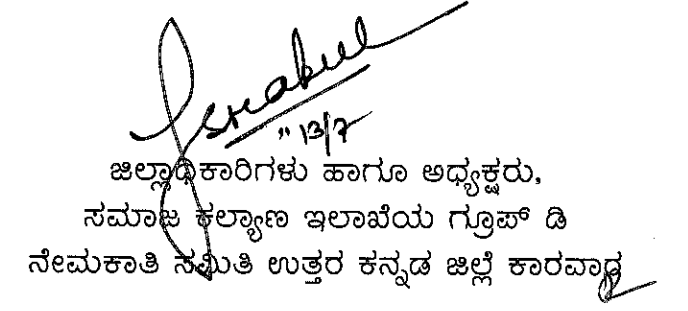 13/7
ಜಿಲ್ಲಾಧಿಕಾರಿಗಳು ಹಾಗೂ ಅಧ್ಯಕ್ಷರು,
ಸಮಾಜ ಕಲ್ಯಾಣ ಇಲಾಖೆಯ ಗ್ರೂಪ್ ಡಿ
ನೇಮಕಾತಿ ಸಮಿತಿ ಉತ್ತರ ಕನ್ನಡ ಜಿಲ್ಲೆ ಕಾರವಾರ